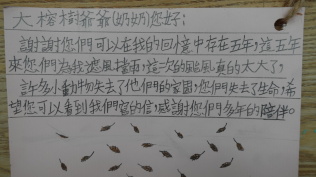 大榕樹爺爺(奶奶)您好:
謝謝您們可以在我的回憶中存在五年,這五年
來您們為我遮風擋雨,這次的颱風真的太大了,
許多小動物失去了他們的家園,您們失去了生命,希
望您可以看到我們寫的信,感謝您們多年的陪伴。